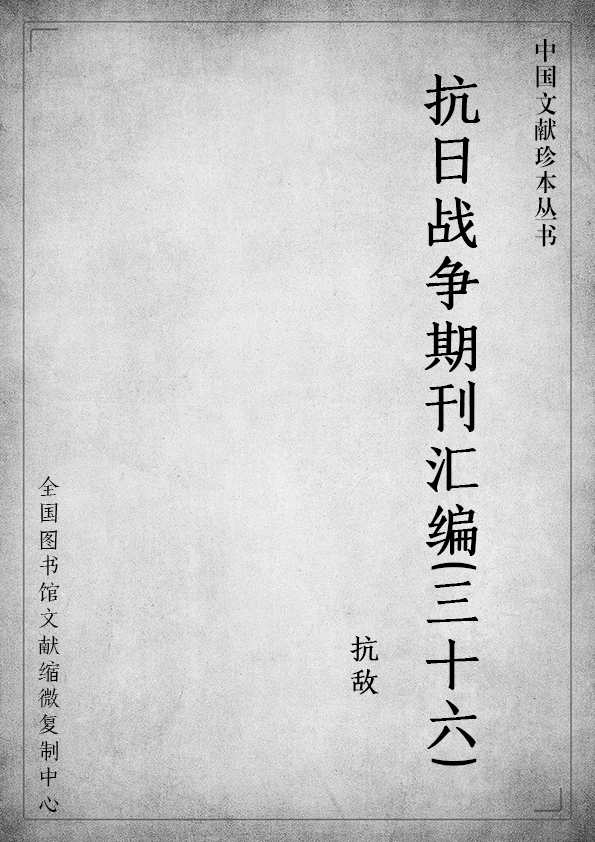 中国文献珍本丛书
抗日战争期刊汇编(三十六)
抗敌
全国图书馆文献缩微复制中心